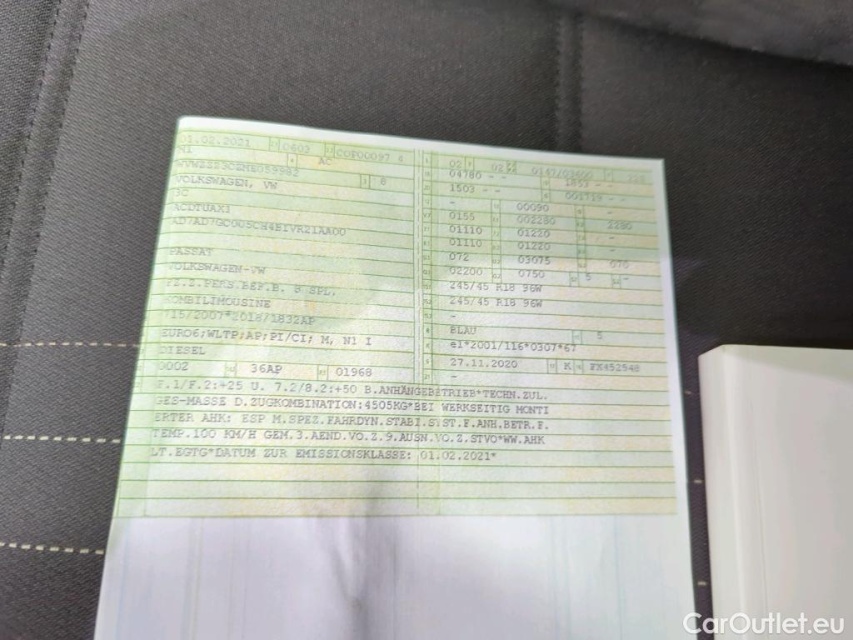 01.02.2021 0603
M1 AC
VOLKSWAGEN, VW 8
3C
PASSAT
VOLKSWAGEN-VW
FZ.Z.PERS.BEF.B. 8 SPL.
KOMBILIMOUSINE
715/2007*2018/1832AP
EURO6;WLTP;AP;PI/CI; M, N1 I
DIESEL
0002 36AP 01968
02
04780 - -
1503 - -
- 00090 -
0155 002280 2280
01110 01220 -
01110 01220 -
072 03075 070
02200 0750 5 -
245/45 R18 96W
245/45 R18 96W
-
BLAU 5
e1*2001/116*0307*67
27.11.2020 K FX452548
-
F.1/F.2:+25 U. 7.2/8.2:+50 B.ANHÄNGEBETRIEB*TECHN.ZUL.
GES-MASSE D.ZUGKOMBINATION:4505KG*BEI WERKSEITIG MONTI
ERTER AHK: ESP M.SPEZ.FAHRDYN.STABI.SYST.F.ANH.BETR.F.
TEMP.100 KM/H GEM.3.AEND.VO.Z.9.AUSN.VO.Z.STVO*WW.AHK
LT.EGTG*DATUM ZUR EMISSIONSKLASSE: 01.02.2021*
CarOutlet.eu